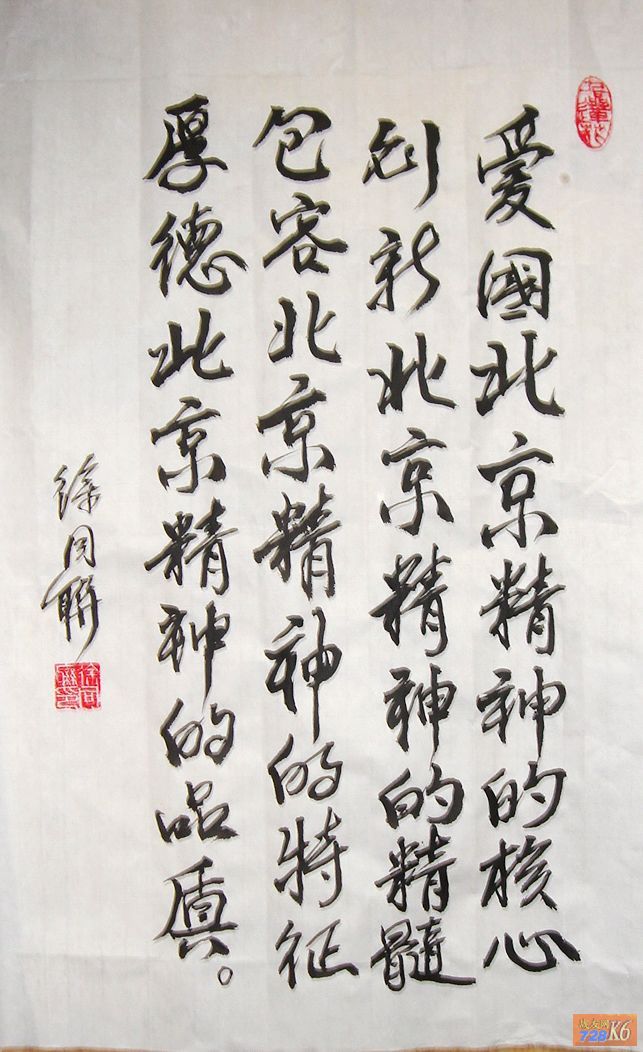 爱國北京精神的核心
创新北京精神的精髓
包容北京精神的特征
厚德北京精神的品质。
徐同联
728K6